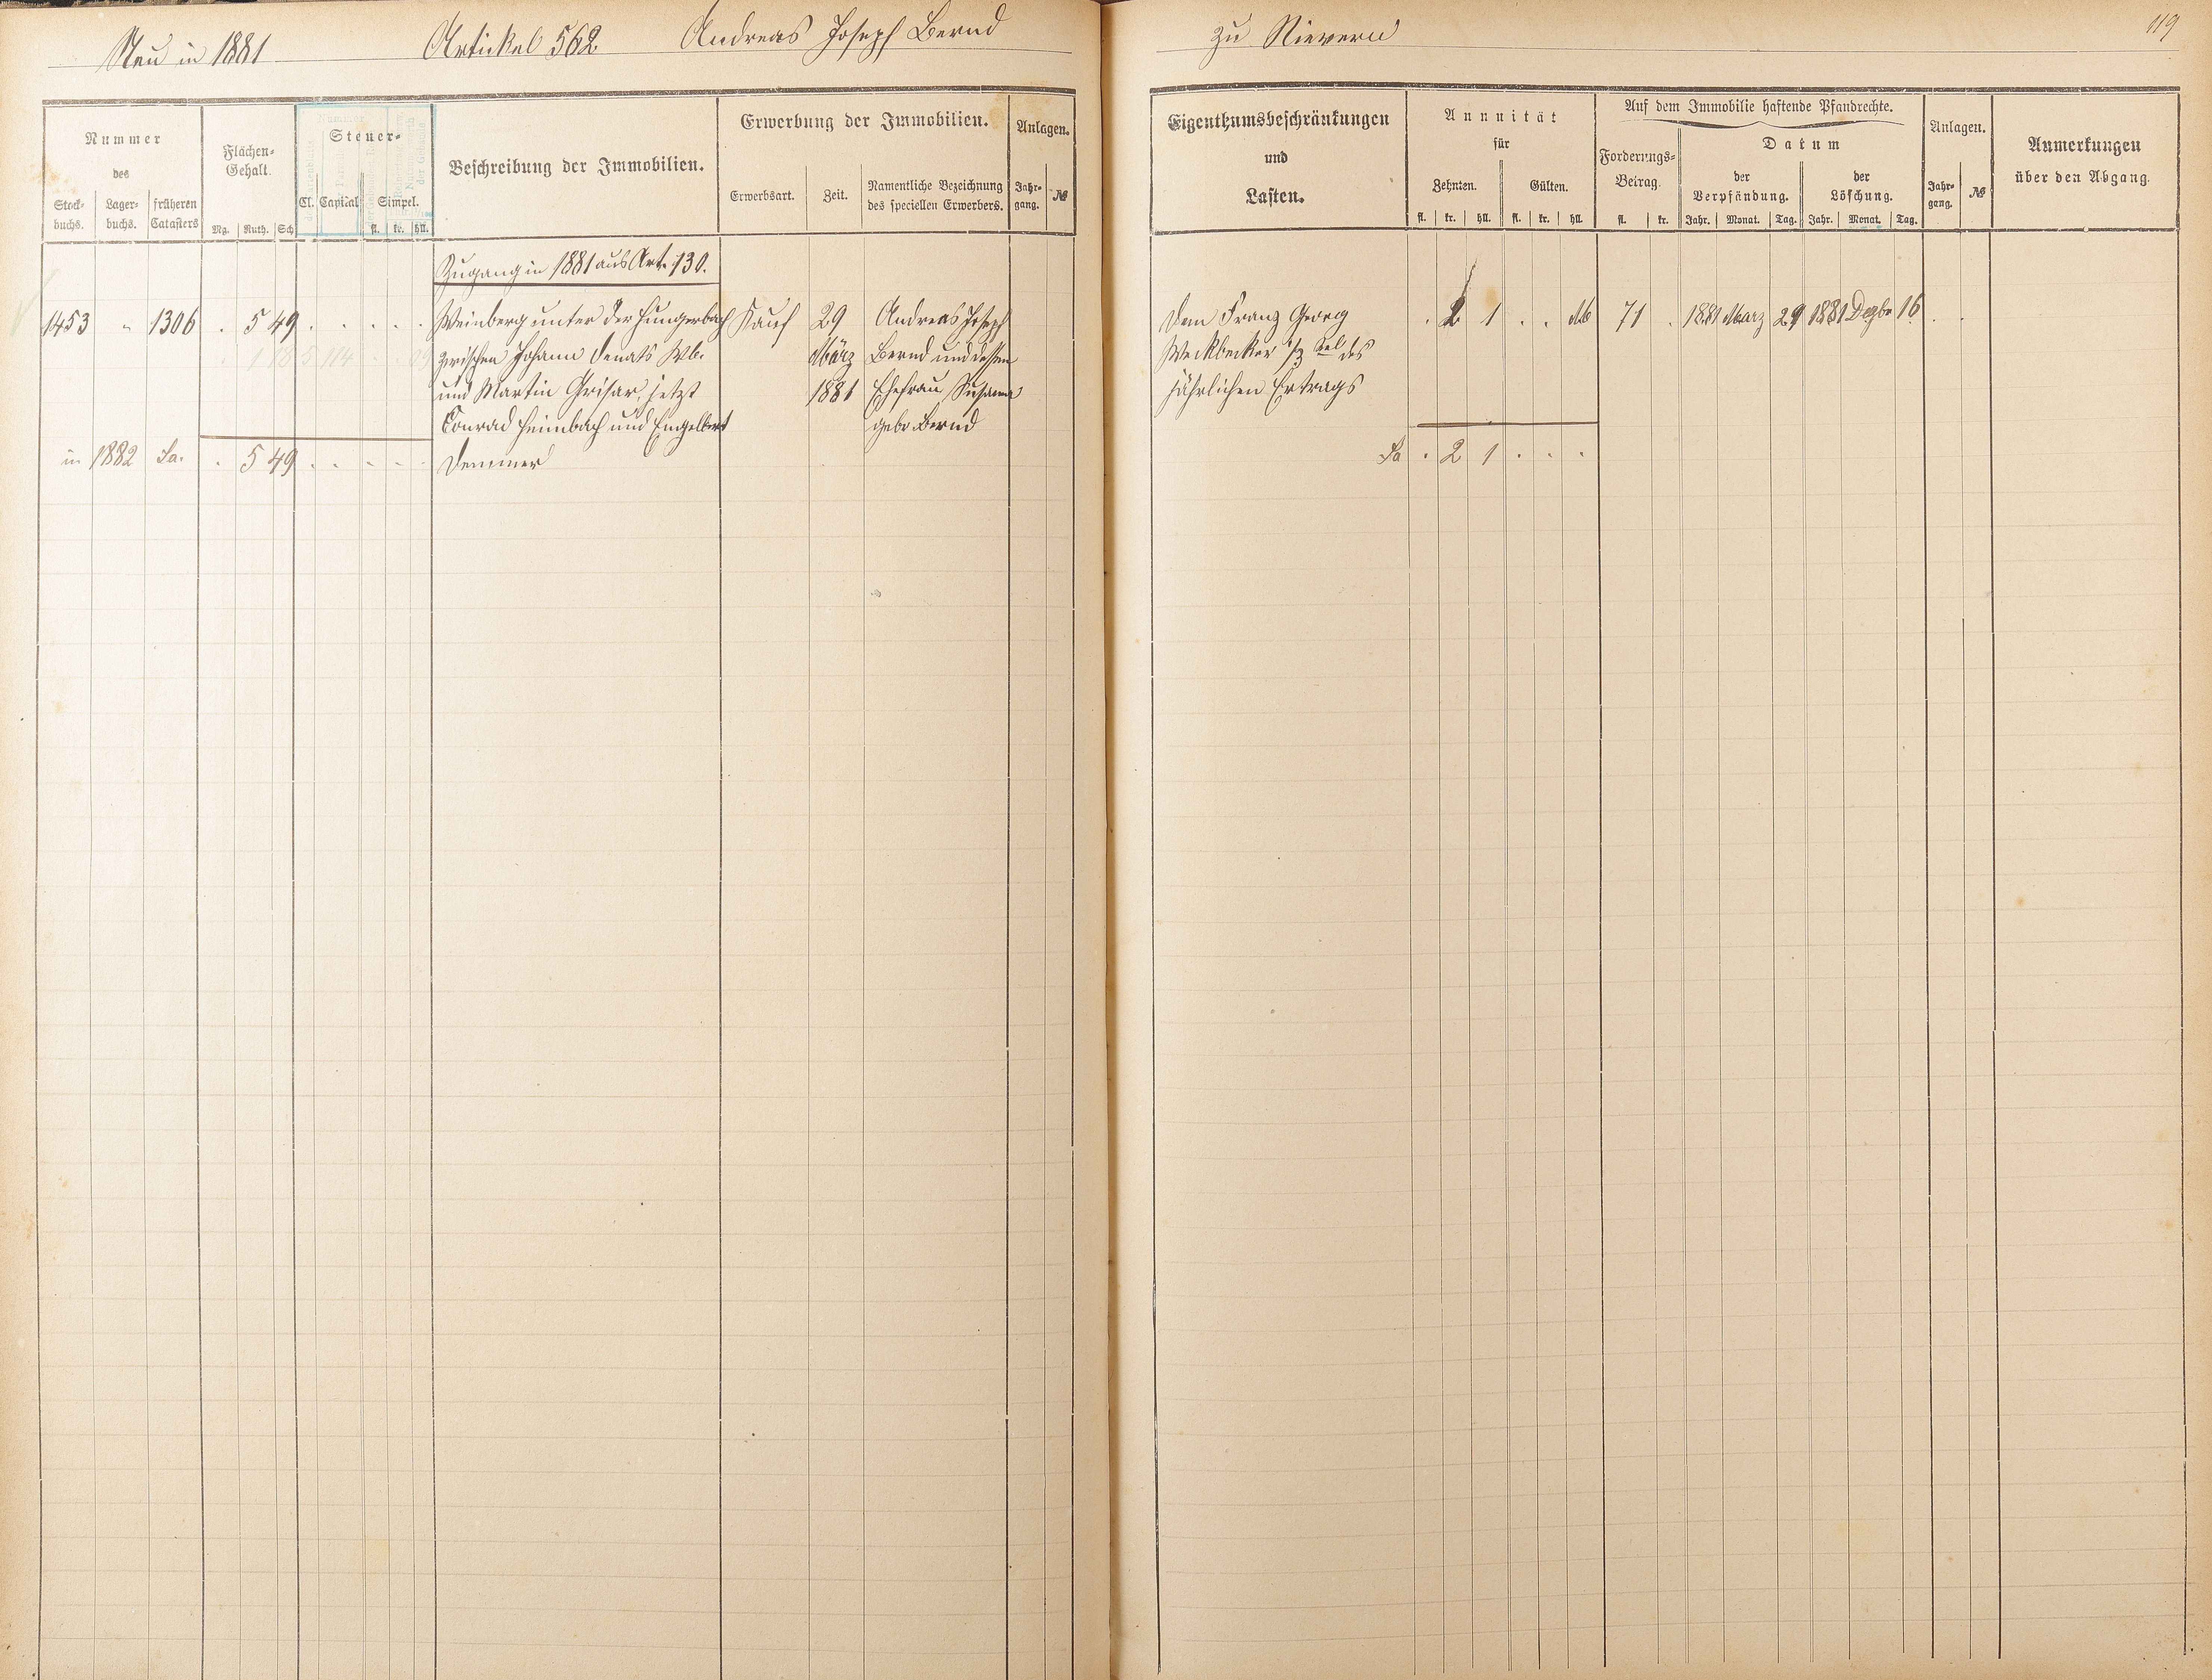 Neu in 1881 Artickel 562 Andreas Joseph Bernd zu Nievern 119
Nummer
des
Stock-
buchs.
Lager-
buchs.
früheren
Catasters
Flächen-
Gehalt.
Mg. Ruth. Sch
Steuer-
Cl. Capital Simpel.
fl. kr. hll.
Beschreibung der Immobilien.
Erwerbung der Immobilien.
Erwerbsart. Zeit. Namentliche Bezeichnung
des speciellen Erwerbers.
Anlagen.
Jahr-
gang. №
Eigenthumsbeschränkungen
und
Lasten.
Annuität
für
Zehnten. Gülten.
fl. kr. hll. fl. kr. hll.
Auf dem Immobilie haftende Pfandrechte.
Forderungs-
Betrag.
fl. kr.
Datum
der
Verpfändung.
Jahr. Monat. Tag.
der
Löschung.
Jahr. Monat. Tag.
Anlagen.
Jahr-
gang. №
Anmerkungen
über den Abgang.
Zugang in 1881 aus Art. 130.
1453 " 1306 . 5 49 . . . . . Weinberg unter der Hungerbach Kauf 29 Andreas Joseph
zwischen Johann Denats Wb. März Bernd und dessen
und Martin Grisar, jetzt 1881 Ehefrau Susanna
Conrad Heimbach und Engelbert geb. Bernd
in 1882 Sa. . 5 49 . . . . . Demmer
Dem Franz Georg . 2 1 . . M 71 . 1881 März 29 1881 Dezbr 16 . .
Weckbecker 1/3 tel des
jährlichen Ertrags
Sa . 2 1 . . .